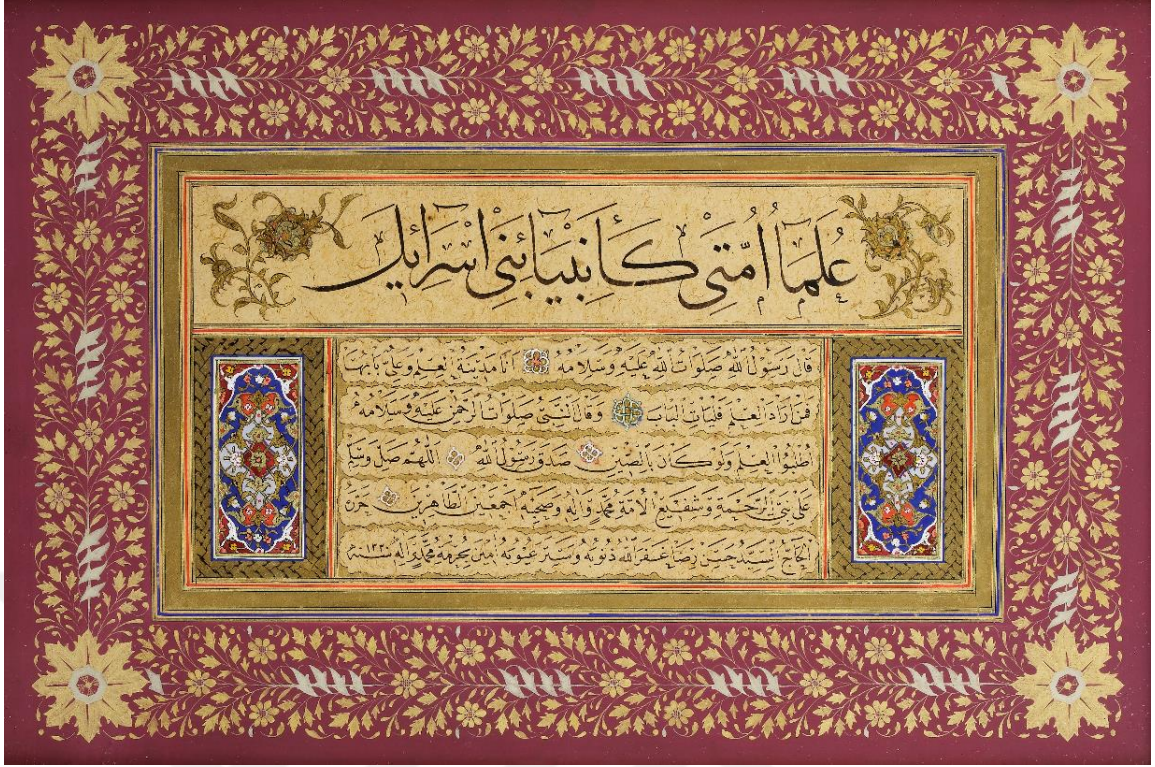 عُلَمَآءُ اُمَّتِى كَأَنْبِيَآءِ بَنِى اِسْرَآئِيلَ
قال رسول الله صلوات الله عليه وسلامه انا مدينة العلم وعلى بابها
فمن اراد العلم فليات الباب وقال النبى صلوات الرحمن عليه وسلامه
اطلبوا العلم ولو كان بالصين صدق رسول الله اللهم صل وسلم
على نبى الرحمة وشفيع الامة محمد واله وصحبه اجمعين الطاهرين حرره
الحاج السيد حسن رضا غفر الله ذنوبه وستر عيوبه امين بحرمة محمد واله سنة